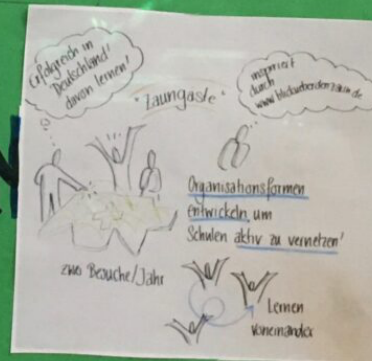 Erfolgreich in
Deutschland!
davon lernen!
"Zaungäste"
inspiriert
durch
www.blickueberdenzaun.de
Organisationsformen
entwickeln, um
Schulen aktiv zu vernetzen!
zwei Besuche/Jahr
Lernen
voneinander